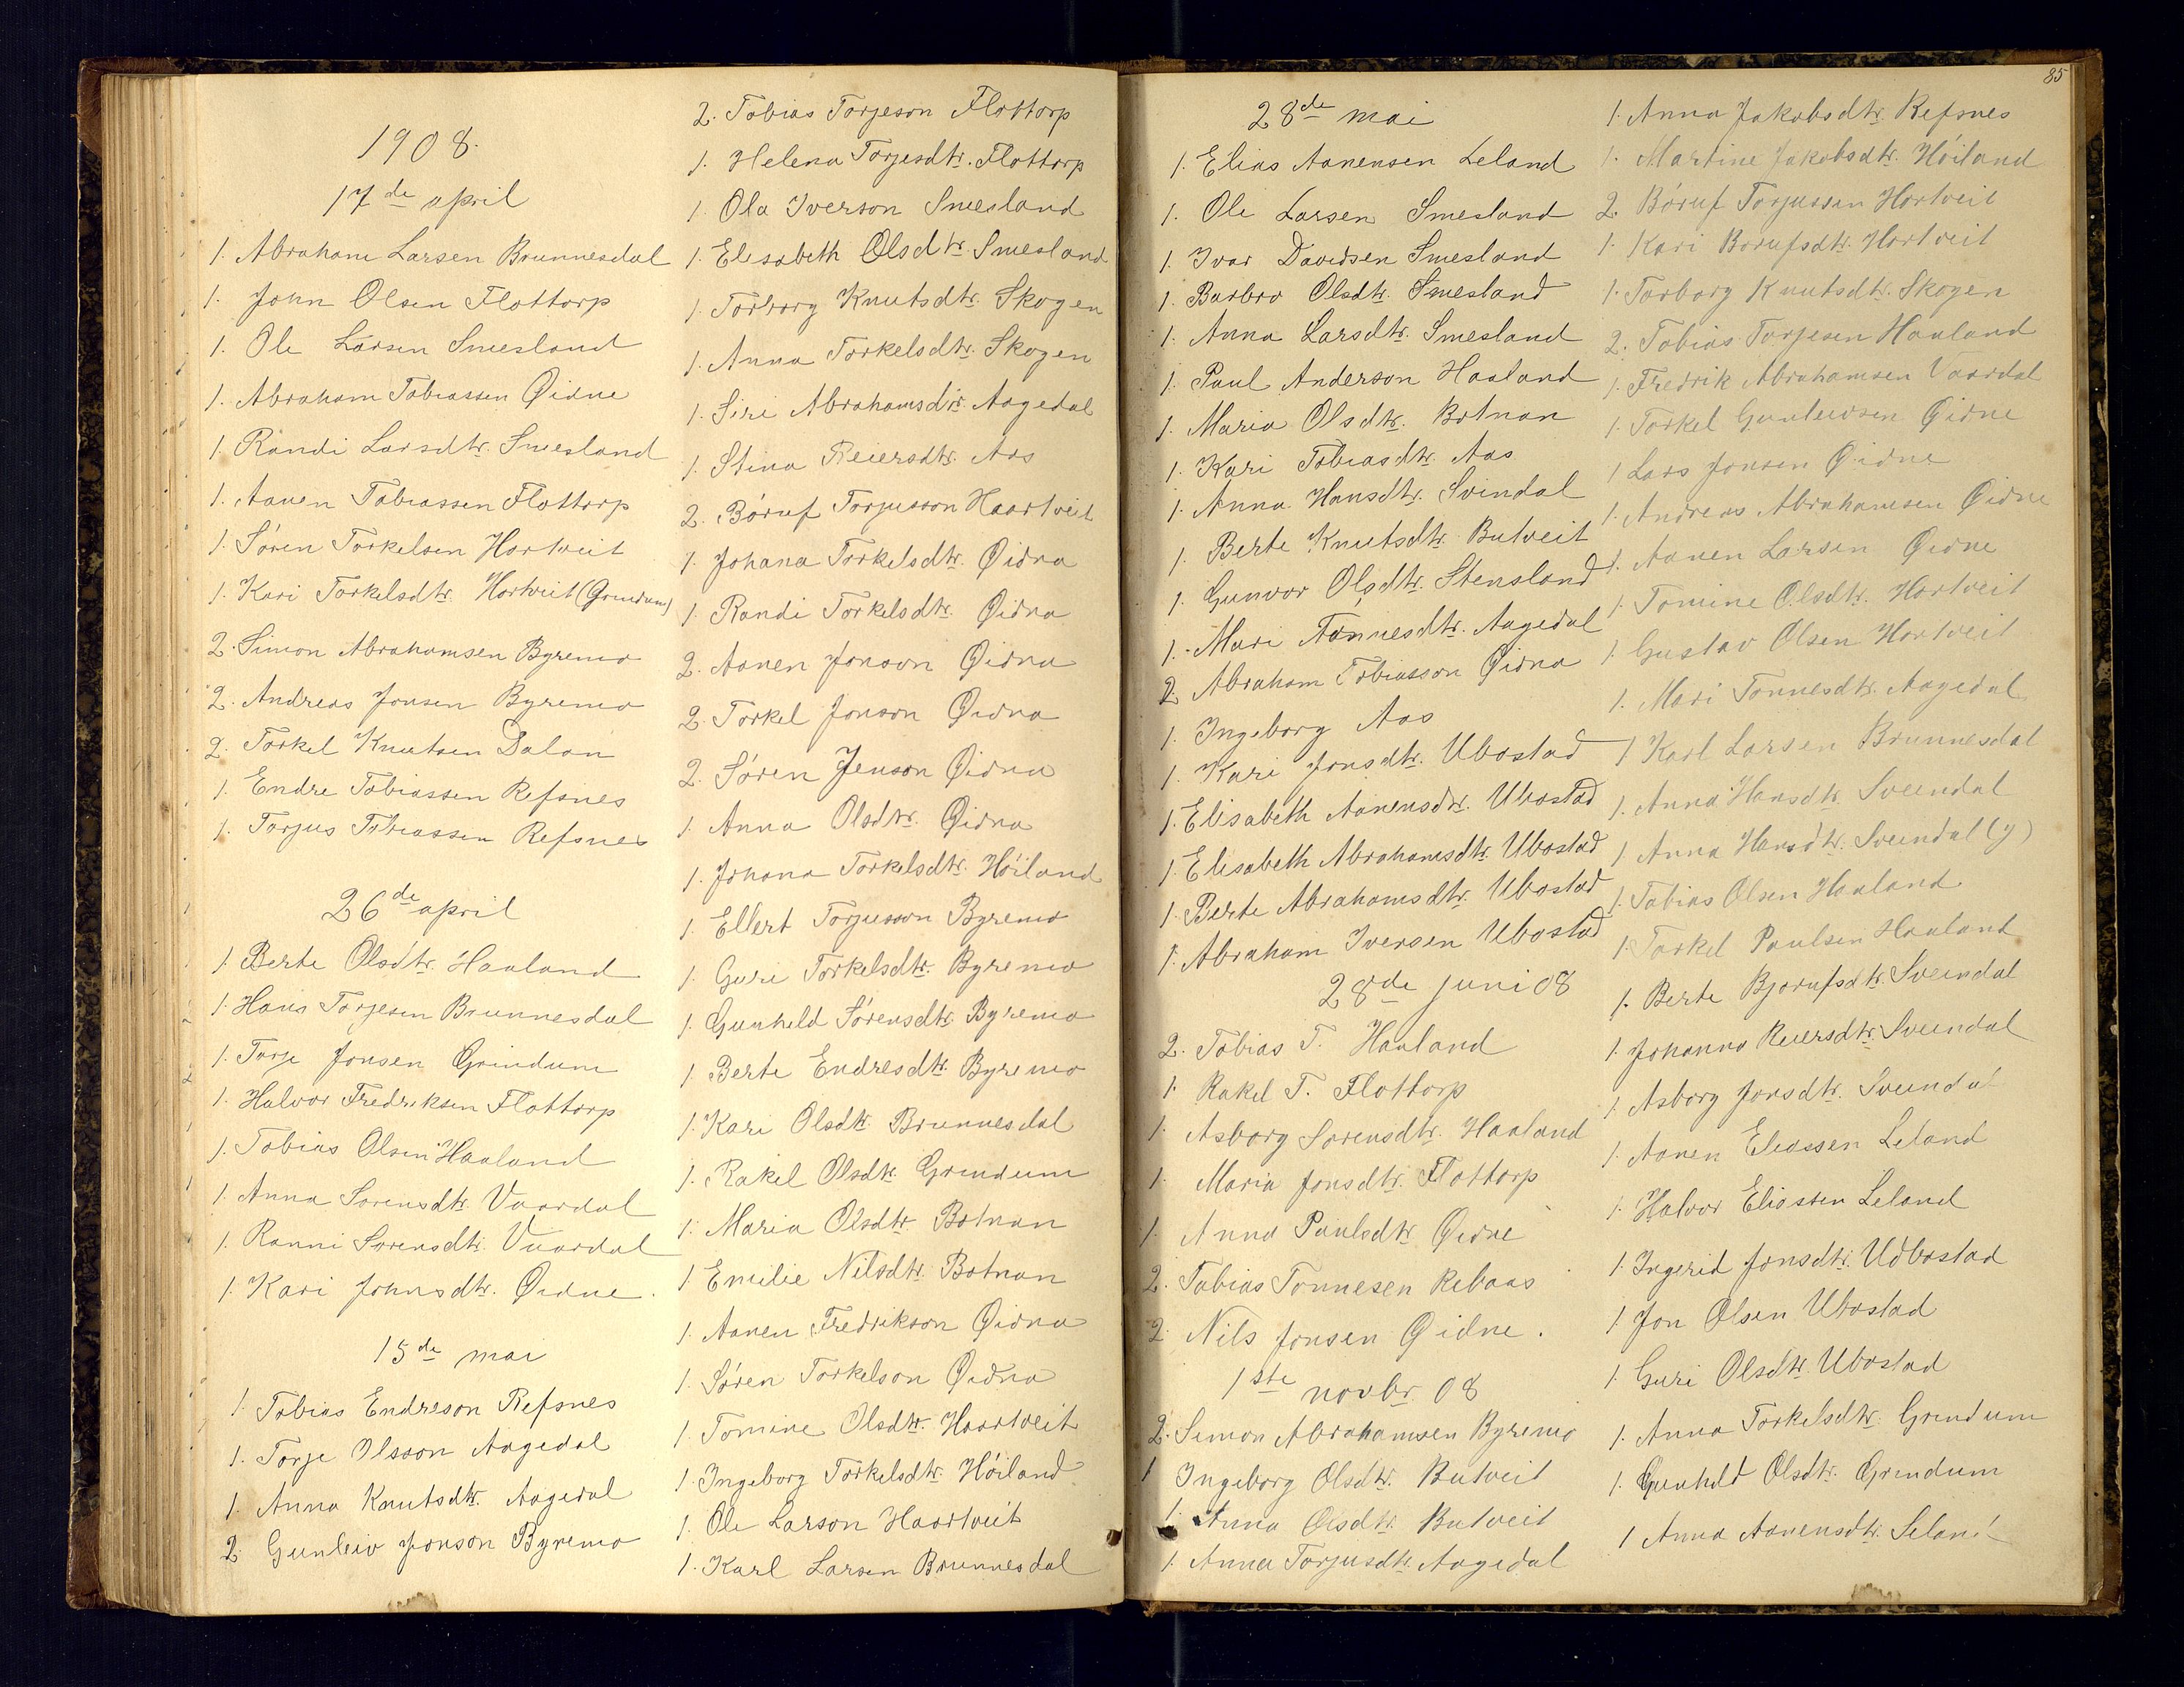 1908.
17de april
1. Abraham Larsen Brunnesdal
1. John Olsen Flottorp
1. Ole Larsen Smesland
1. Abraham Tobiassen Øidne
1. Randi Larsdtr. Smesland
1. Aanen Tobiassen Flottorp
1. Sören Torkelsen Hortveit
1. Kari Torkelsdtr. Hortveit (Grindum)
2. Simon Abrahamsen Byremo
2. Andreas Jonsen Byremo
2. Torkel Knutsen Dalan
1. Endre Tobiassen Refsnes
1. Torjus Tobiassen Refsnes
26de april
1. Berte Olsdtr. Haaland
1. Hans Torjesen Brunnesdal
1. Torje Jonsen Grindum
1. Halvor Fredriksen Flottorp
1. Tobias Olsen Haaland
1. Anna Sorensdtr. Vaardal
1. Ranni Sorensdtr. Vaardal
1. Kari Johnsdtr. Øidne.
15de mai
1. Tobias Endreson Refsnes
1. Torje Olsson Aagedal
1. Anna Knutsdtr. Aagedal
2. Gunleiv Jonson Byremo
2. Tobias Torjeson Flottorp
1. Helena Torjesdtr. Flottorp
1. Ola Iverson Smesland
1. Elisabeth Olsdtr. Smesland
1. Torborg Knutsdtr. Skogen
1. Anna Torkelsdtr. Skogen
1. Siri Abrahamsdtr. Aagedal
1. Stina Reiersdtr. Aas
2. Böruf Torjusson Haartveit
1. Johana Torkelsdtr. Øidna
1. Randi Torkelsdtr. Øidna
2. Aanen Jonson Øidna
2. Torkel Jonson Øidna
2. Sören Jenson Øidna
1. Anna Olsdtr. Øidna
1. Johana Torkelsdtr. Höiland
1. Ellert Torjusson Byremo
1. Guri Torkelsdtr. Byremo
1. Gunheld Sörensdtr. Byremo
1. Berte Endresdtr. Byremo
1. Kari Olsdtr. Brunnesdal
1. Rakel Olsdtr. Grindum
1. Maria Olsdtr. Botnan
1. Emilie Nilsdtr. Botnan
1. Aanen Fredrikson Øidna
1. Sören Torkelson Øidna
1. Tomine Olsdtr. Haartveit
1. Ingeborg Torkelsdtr. Höiland
1. Ole Larson Haartveit
1. Karl Larsen Brunnesdal
85
28de mai
1. Elias Aanensen Leland
1. Ole Larsen Smesland
1. Ivar Davidsen Smesland
1. Barbro Olsdtr. Smesland
1. Anna Larsdtr. Smesland
1. Paul Anderson Haaland
1. Maria Olsdtr. Botnan
1. Kari Tobiasdtr. Aas
1. Anna Hansdtr. Svindal
1. Berte Knutsdtr. Butveit
1. Gunvor Olsdtr. Stensland
1. Mari Tönnesdtr. Aagedal
2. Abraham Tobiasson Øidna
1. Ingeborg Aas
1. Kari Jonsdtr. Ubostad
1. Elisabeth Aanensdtr. Ubostad
1. Elisabeth Abrahamsdtr. Ubostad
1. Berte Abrahamsdtr. Ubostad
1. Abraham Iversen Ubostad
28de juni 08
2. Tobias T. Haaland
1. Rakel T. Flottorp
1. Asborg Sorensdtr. Haaland
1. Maria Jonsdtr. Flottorp
1. Anna Paulsdtr Øidne
2. Tobias Tonnesen Rebaas
2. Nils Jonsen Øidne.
1ste novbr. 08
2. Simon Abrahamsen Byremo
1 Ingeborg Olsdtr. Butveit
1. Anna Olsdtr. Butveit
1. Anna Torjusdtr. Aagedal
1. Anna Jakobsdtr. Refsnes
1. Martine Jakobsdtr. Höiland
2. Böruf Torjussen Hortveit
1. Kari Borufsdtr. Hortveit
1. Torborg Knutsdtr. Skogen
2. Tobias Torjesen Haaland
1. Fredrik Abrahamsen Vaardal
1. Torkel Gunleivsen Øidne
1 Lars Jonsen Øidne
1. Andreas Abrahamsen Øidne
1. Aanen Larsen Øidne
1. Tomine Olsdtr. Hortveit
1. Gustav Olsen Hortveit
1. Mari Tonnesdtr. Aagedal
1 Karl Larsen Brunnesdal
1. Anna Hansdtr. Sveindal
1. Anna Hansdtr. Sveindal (y)
1. Tobias Olsen Haaland
1. Torkel Paulsen Haaland
1. Berte Bjorufsdtr. Sveindal
1. Johanna Reiersdtr. Sveindal
1. Asborg Jonsdtr. Sveindal
1. Aanen Eliassen Leland
1. Halvor Eliassen Leland
1. Ingerid Jonsdtr. Udbostad
1 Jon Olsen Ubostad
1. Guri Olsdtr. Ubostad
1. Anna Torkelsdtr. Grindum
1. Gunheld Olsdtr. Grindum
1 Anna Aanensdtr. Leland